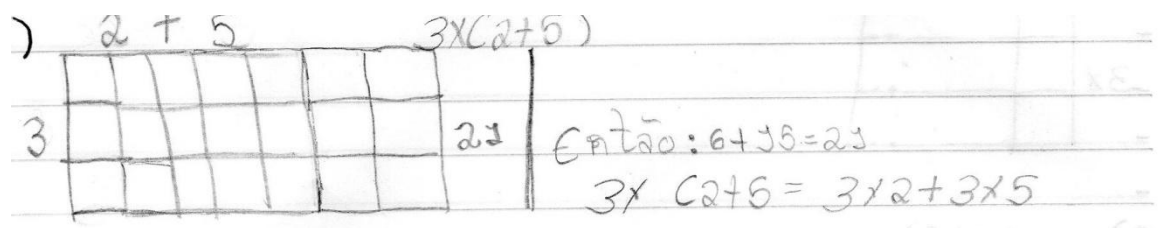 ) 2 + 5 3x(2+5)
3 21
Então: 6+15=21
3x (2+5 = 3x2+3x5